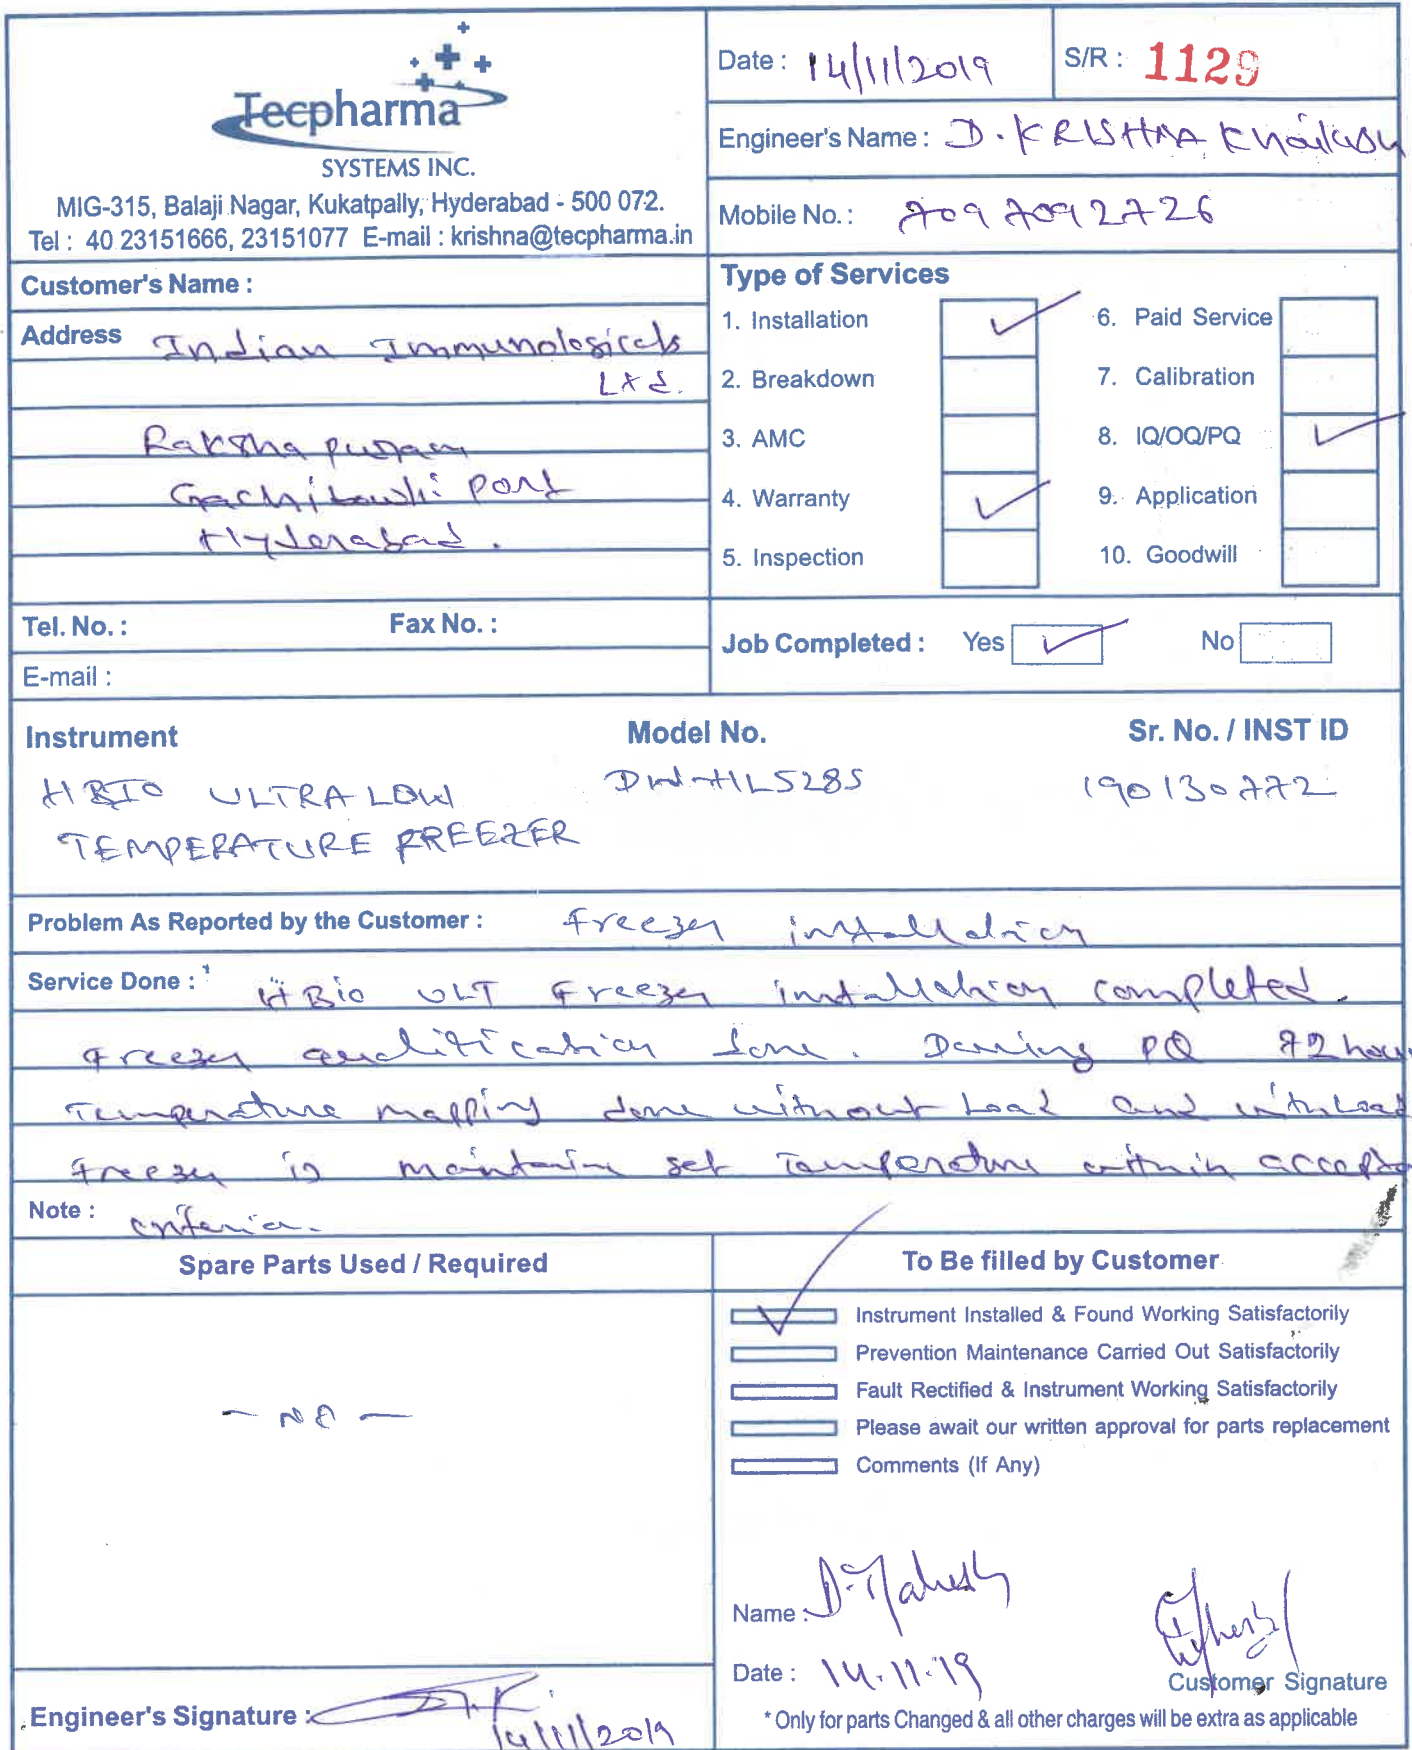 Tecpharma
SYSTEMS INC.
MIG-315, Balaji Nagar, Kukatpally, Hyderabad - 500 072.
Tel : 40 23151666, 23151077 E-mail : krishna@tecpharma.in
Date : 14/11/2019
S/R : 1129
Engineer's Name : D. KRISHNA
Mobile No. : 7097092726
Customer's Name :
Address Indian Immunologicals
Ltd.
Raksha puram
Gachibowli Post
Hyderabad.
Tel. No. : Fax No. :
E-mail :
Type of Services
1. Installation
2. Breakdown
3. AMC
4. Warranty
5. Inspection
6. Paid Service
7. Calibration
8. IQ/OQ/PQ
9. Application
10. Goodwill
Job Completed : Yes No
Instrument Model No. Sr. No. / INST ID
HBIO ULTRA LOW DW-HL528S 190130772
TEMPERATURE FREEZER
Problem As Reported by the Customer : Freezer installation
Service Done : HBio ULT Freezer installation completed.
Freezer qualification done. During PQ 72 hou
Temperature mapping done without Load and with Load
Freezer is maintain set Temperature within accepta
Note : criteria.
Spare Parts Used / Required
- NA -
To Be filled by Customer
Instrument Installed & Found Working Satisfactorily
Prevention Maintenance Carried Out Satisfactorily
Fault Rectified & Instrument Working Satisfactorily
Please await our written approval for parts replacement
Comments (If Any)
Name : D. Mahesh
Date : 14.11.19
Customer Signature
* Only for parts Changed & all other charges will be extra as applicable
Engineer's Signature :
14/11/2019